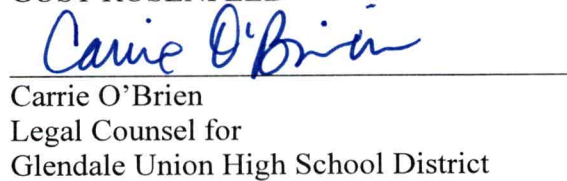 Carrie O'Brien
Carrie O’Brien
Legal Counsel for
Glendale Union High School District